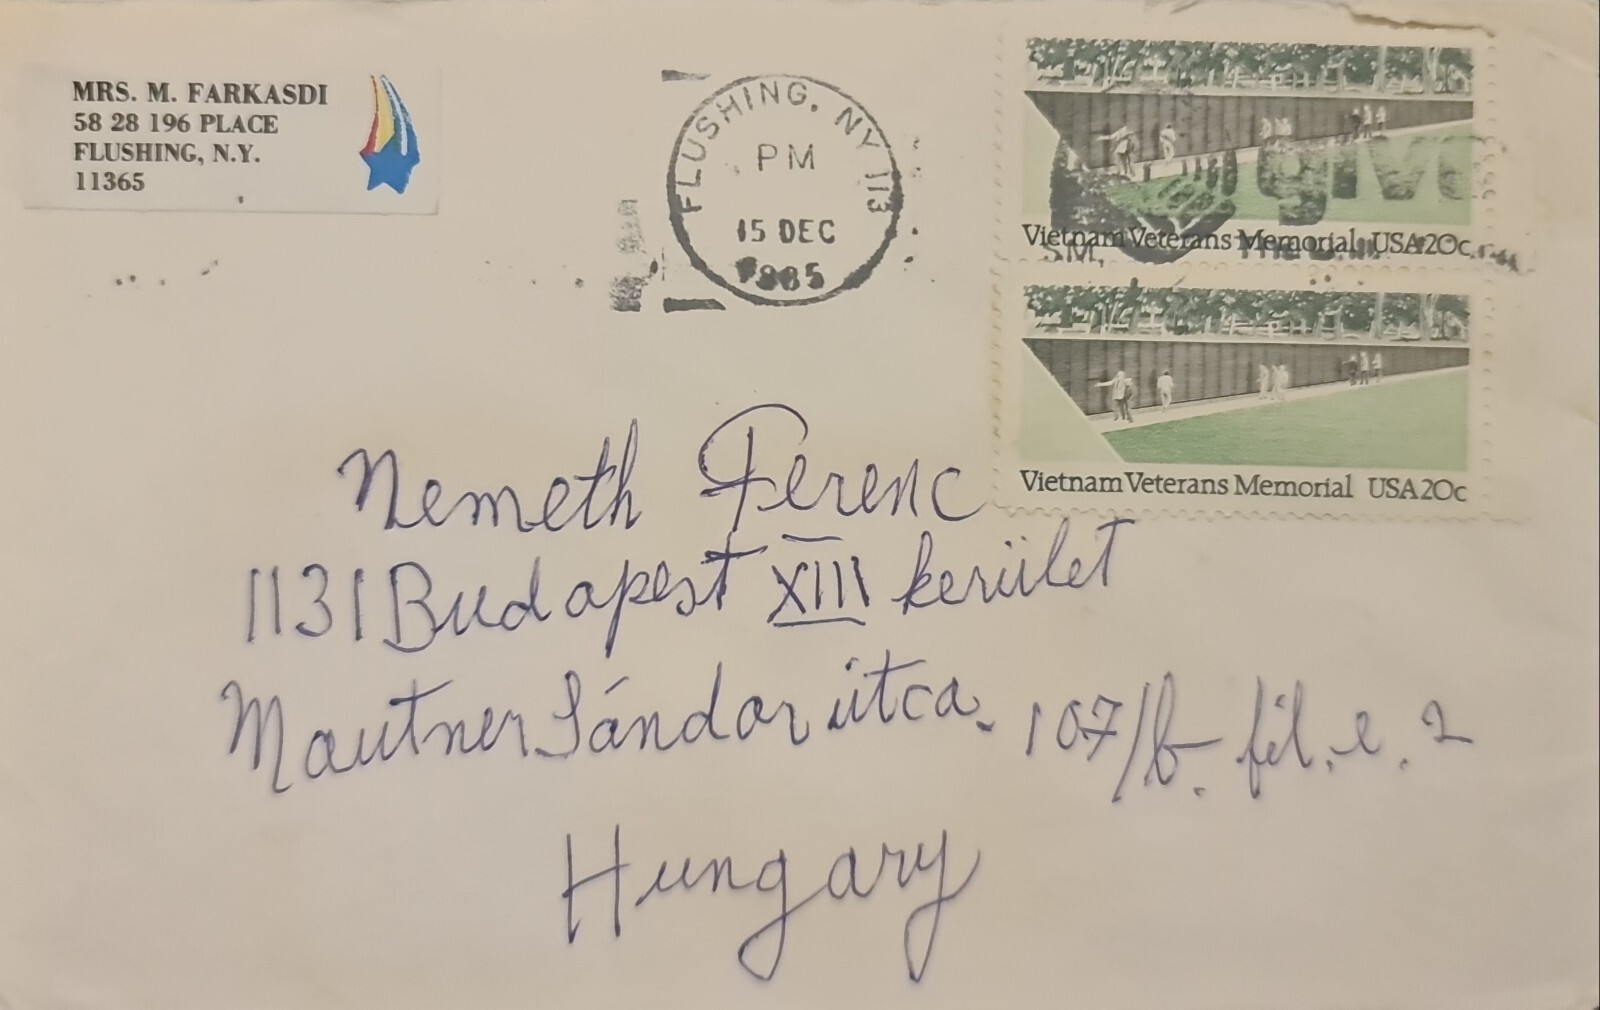 MRS. M. FARKASDI
58 28 196 PLACE
FLUSHING, N.Y.
11365
FLUSHING, NY 113
PM
15 DEC
1985
give
Vietnam Veterans Memorial USA 20c
Vietnam Veterans Memorial USA 20c
Nemeth Ferenc
1131 Budapest XIII kerület
Mautner Sándor útca. 107/b. fél. e. 2
Hungary